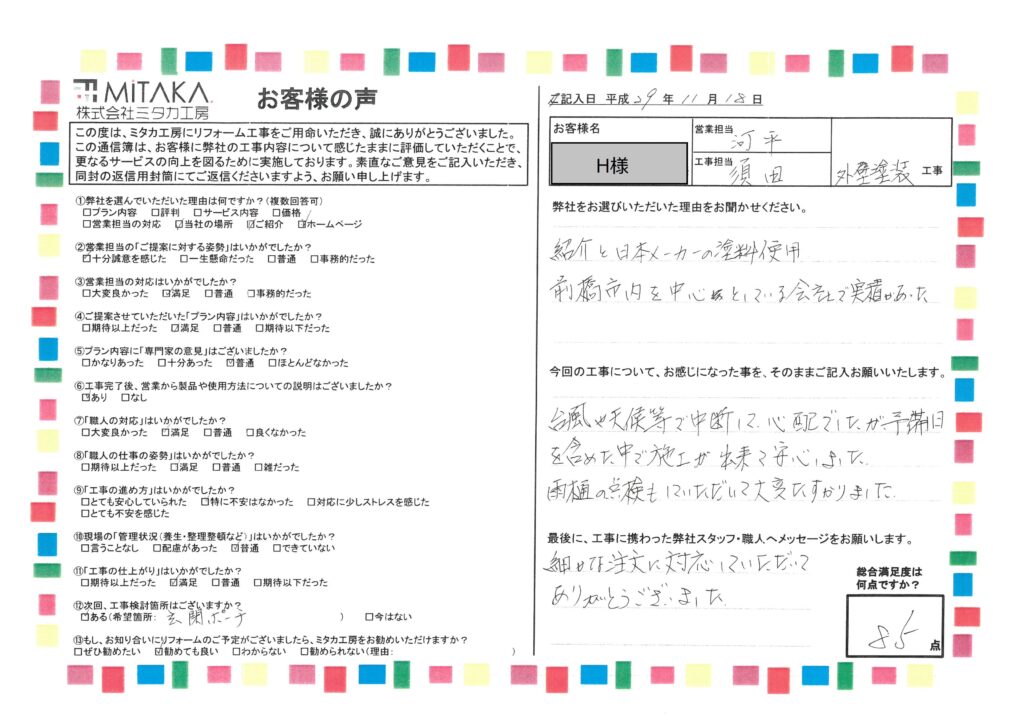 MiTAKA
株式会社ミタカ工房
お客様の声
この度は、ミタカ工房にリフォーム工事をご用命いただき、誠にありがとうございました。
この通信簿は、お客様に弊社の工事内容について感じたままに評価していただくことで、
更なるサービスの向上を図るために実施しております。素直なご意見をご記入いただき、
同封の返信用封筒にてご返信くださいますよう、お願い申し上げます。
①弊社を選んでいただいた理由は何ですか？（複数回答可）
□プラン内容 □評判 □サービス内容 □価格
□営業担当の対応 ☑当社の場所 ☑ご紹介 ☑ホームページ
②営業担当の「ご提案に対する姿勢」はいかがでしたか？
☑十分誠意を感じた □一生懸命だった □普通 □事務的だった
③営業担当の対応はいかがでしたか？
□大変良かった ☑満足 □普通 □事務的だった
④ご提案させていただいた「プラン内容」はいかがでしたか？
□期待以上だった ☑満足 □普通 □期待以下だった
⑤プラン内容に「専門家の意見」はございましたか？
□かなりあった □十分あった ☑普通 □ほとんどなかった
⑥工事完了後、営業から製品や使用方法についての説明はございましたか？
☑あり □なし
⑦「職人の対応」はいかがでしたか？
□大変良かった ☑満足 □普通 □良くなかった
⑧「職人の仕事の姿勢」はいかがでしたか？
□期待以上だった □満足 □普通 □雑だった
⑨「工事の進め方」はいかがでしたか？
□とても安心していられた □特に不安はなかった □対応に少しストレスを感じた
□とても不安を感じた
⑩現場の「管理状況（養生・整理整頓など）」はいかがでしたか？
□言うことなし □配慮があった ☑普通 □できていない
⑪「工事の仕上がり」はいかがでしたか？
□期待以上だった ☑満足 □普通 □期待以下だった
⑫次回、工事検討箇所はございますか？
☑ある（希望箇所： 玄関ポーチ ） □今はない
⑬もし、お知り合いにリフォームのご予定がございましたら、ミタカ工房をお勧めいただけますか？
□ぜひ勧めたい ☑勧めても良い □わからない □勧められない（理由： ）
ご記入日 平成29年11月18日
お客様名
H様
営業担当 河平
工事担当 須田
外壁塗装 工事
弊社をお選びいただいた理由をお聞かせください。
紹介と日本メーカーの塗料使用
前橋市内を中心としている会社で実績があった
今回の工事について、お感じになった事を、そのままご記入お願いいたします。
台風や天候等で中断して心配でしたが、予備日
を含めた中で施工が出来て安心しました。
雨樋の点検もしていただいて大変たすかりました。
最後に、工事に携わった弊社スタッフ・職人へメッセージをお願いします。
細かな注文に対応していただいて
ありがとうございました
総合満足度は
何点ですか？
85点